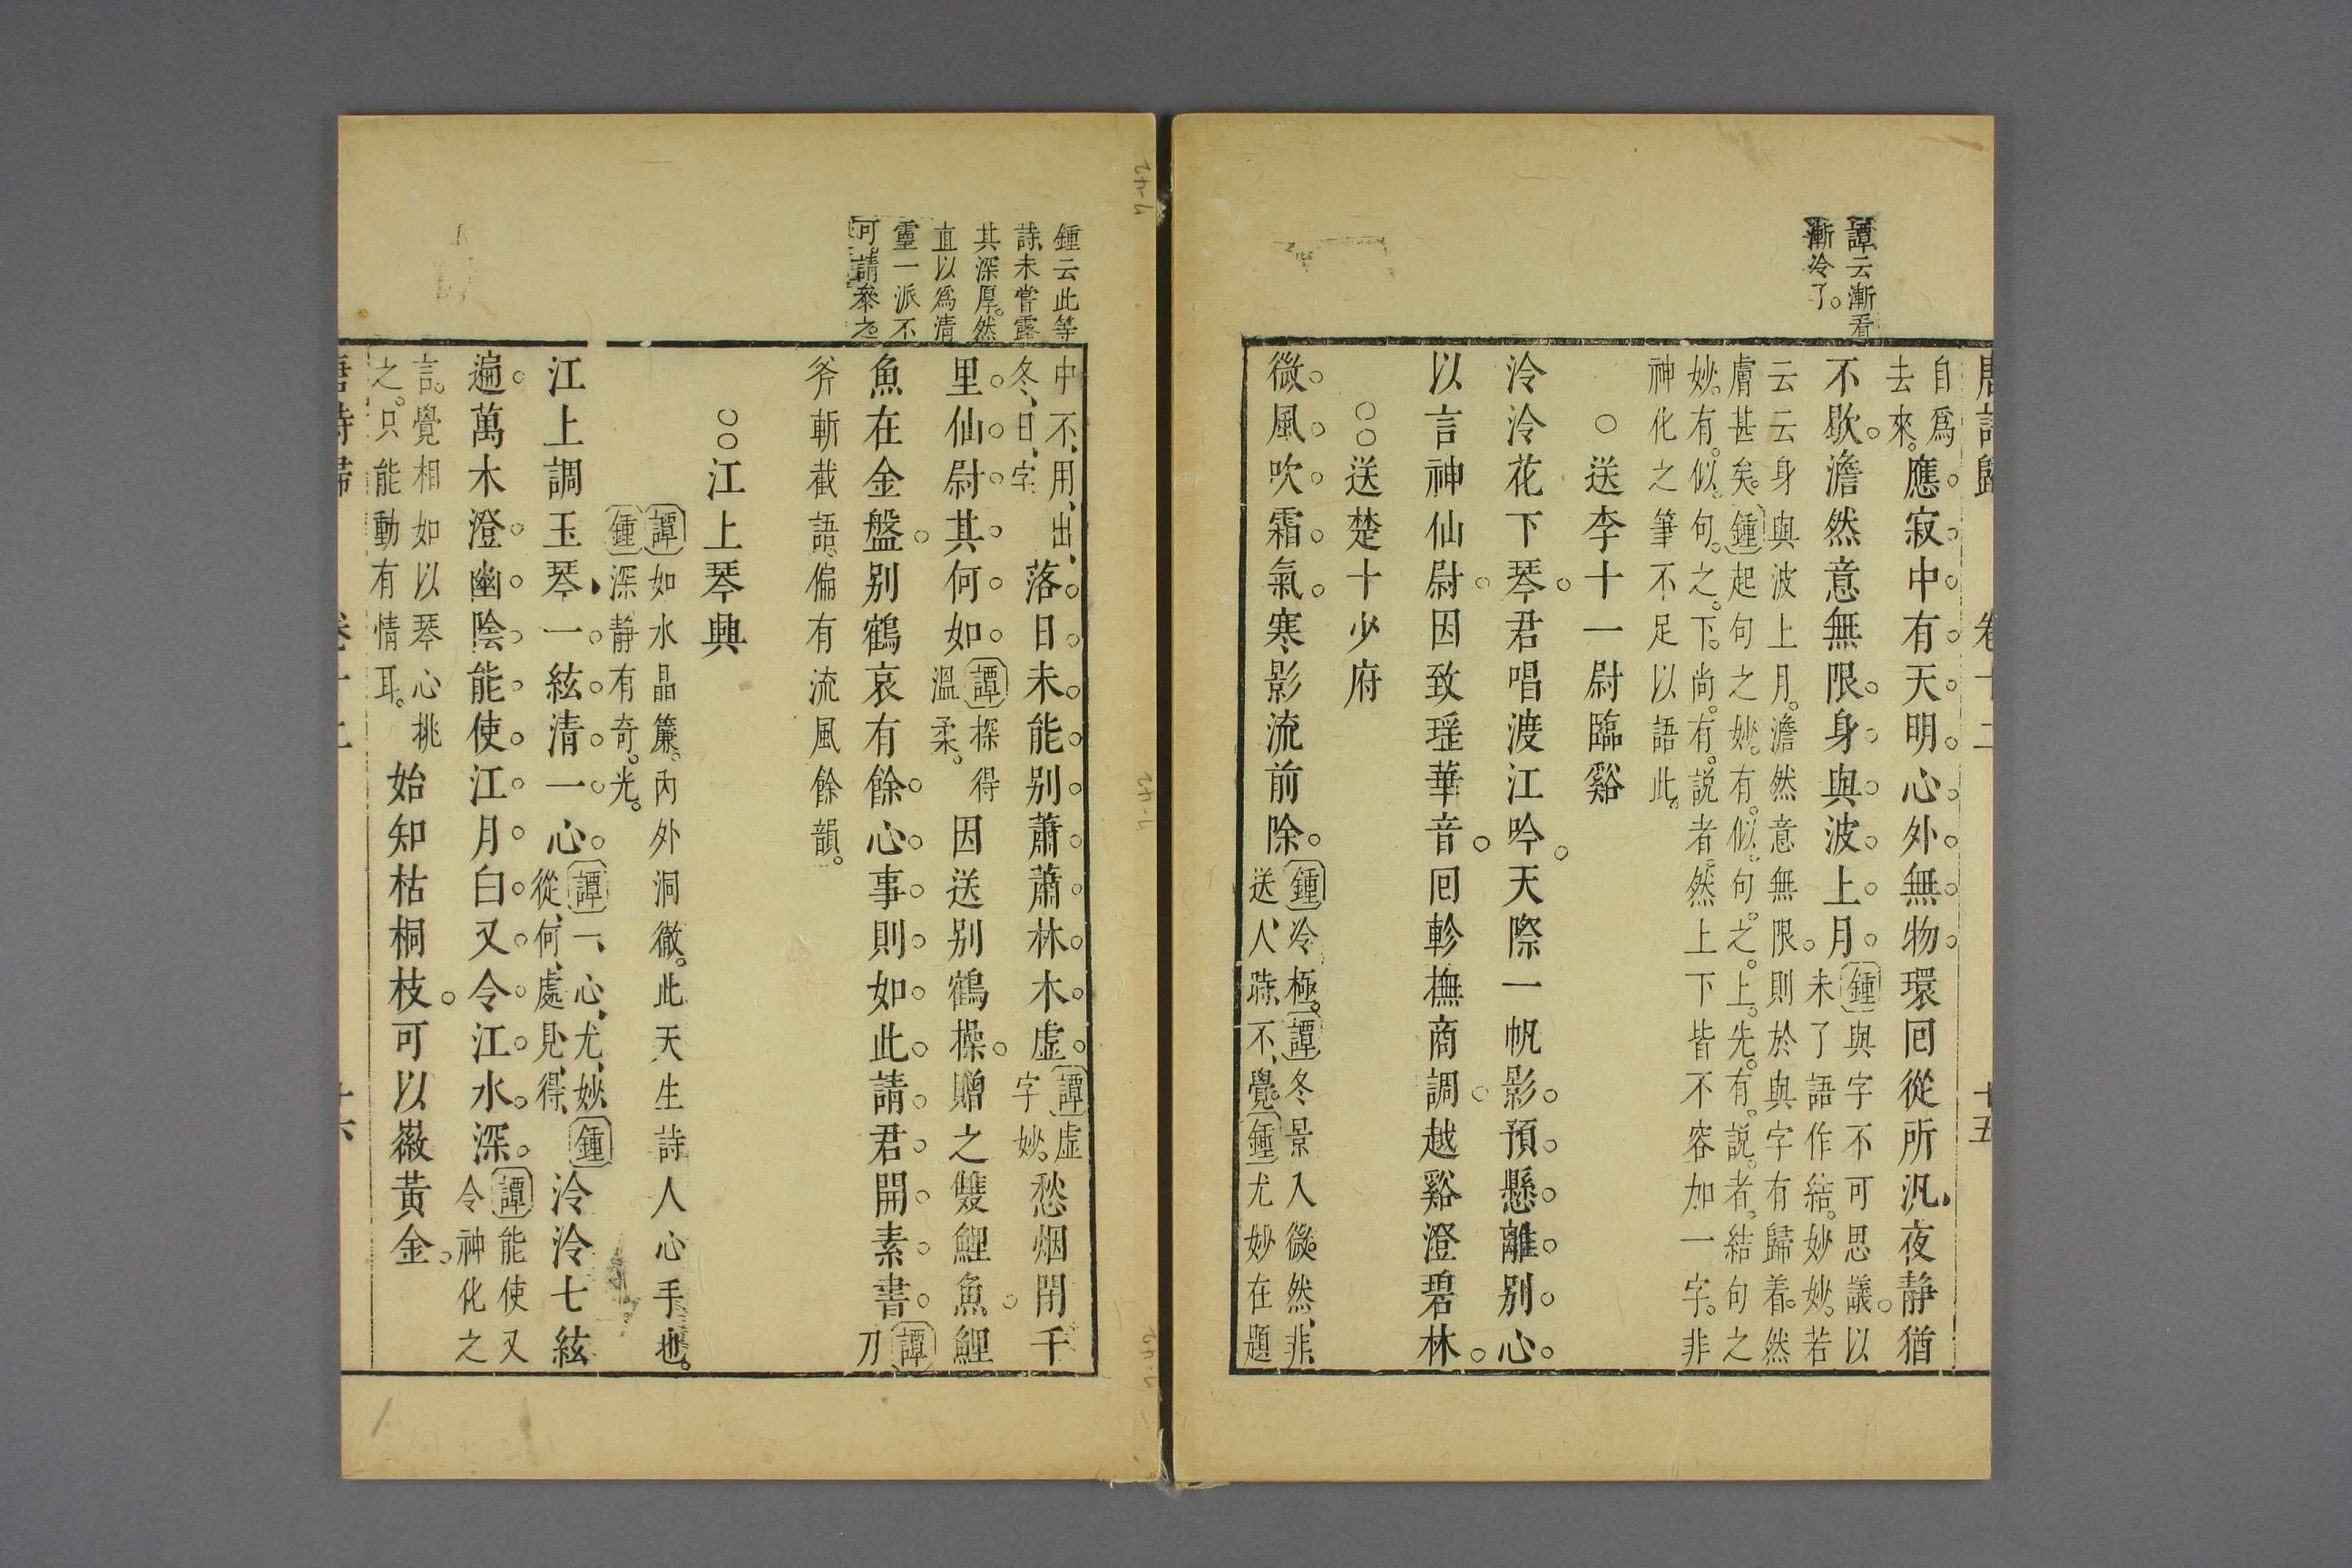 唐詩歸 卷十二 十五
譚云漸看
漸冷了。
自爲
去來。
應寂中有天明心外無物環囘從所汎夜靜猶
不歇澹然意無限身與波上月
鍾與字不可思議。以
未了語作結妙妙。若
云云身與波上月。澹然意無限。則於與字有歸着。然
膚甚矣。鍾起句之妙。有似句之上。先有說者。結句之
妙。有似句之下。尚有說者。然上下皆不容加一字。非
神化之筆不足以語此。
○送李十一尉臨谿
泠泠花下琴。君唱渡江吟。天際一帆影預懸離別心。
以言神仙尉。因致瑶華音。囘軫撫商調。越谿澄碧林。
○○送楚十少府
微風吹霜氣寒影流前除。
鍾冷極。譚冬景入微。然非
送人時不覺鍾尤妙在題
鍾云此等
詩未嘗露
其深厚。然
直以爲清
靈一派不
可。請參之。
中不用出
冬日字
落日未能別蕭蕭林木虛。
譚虛
字妙。
愁烟閉千
里仙尉其何如。
譚探得
溫柔。
因送別鶴操。贈之雙鯉魚。鯉
魚在金盤。别鶴哀有餘。心事則如此請君開素書。
譚
刀
斧斬截語。偏有流風餘韻。
○○江上琴興
譚如水晶簾。內外洞徹。此天生詩人心手也。
鍾深靜有奇光。
江上調玉琴、一絃清一心。
譚一心尤妙鍾
從何處見得
泠泠七絃
遍萬木澄幽陰能使江月白又令江水深。
譚能使又
令神化之
言。覺相如以琴心挑
之。只能動有情耳。
始知枯桐枝。可以薇黄金。
唐詩歸 卷十二 十六